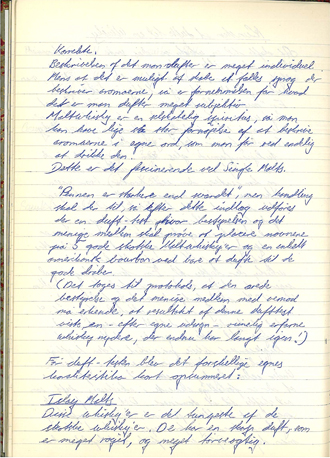 Korrekte.
Beskrivelsen af det man dufter er meget individuel.
Mens at det er muligt at skabe et fælles sprog der
beskriver aromaerne, så er fornemmelsen for hvad
det er man dufter meget subjektiv.
Maltwhisky er en spiritus, så man
kan have lige så stor fornøjelse af at beskrive
aromaerne i egne ord, som man får ved endelig
at drikke den!
Dette er det fascinerende ved Single Malts.
"Pennen er stærkere end sværdet", men handling
skal der til, så efter dette indlæg udføres
der en duft-test, hvor bestyrelsen og det
menige medlem skal prøve at placere navnene
på 5 gode skotske Maltwhiskyer og en enkelt
amerikansk bourbon ved kun at dufte til de
gode dråber.
(Det tages til protokols, at den ærede
bestyrelse og det menige medlem med vemod
må erkende, at resultatet af denne dufttest
viste, en - efter egne udsagn - rimelig erfaren
whisky nyder, der endnu har langt igen!)
Før duft-testen blev det forskellige egnes
karakteristika kort opsummeret:
Islay Malts
Disse whiskyer er det tungeste af de
skotske whiskyer. De har en skarp duft, som
er meget røget, og meget